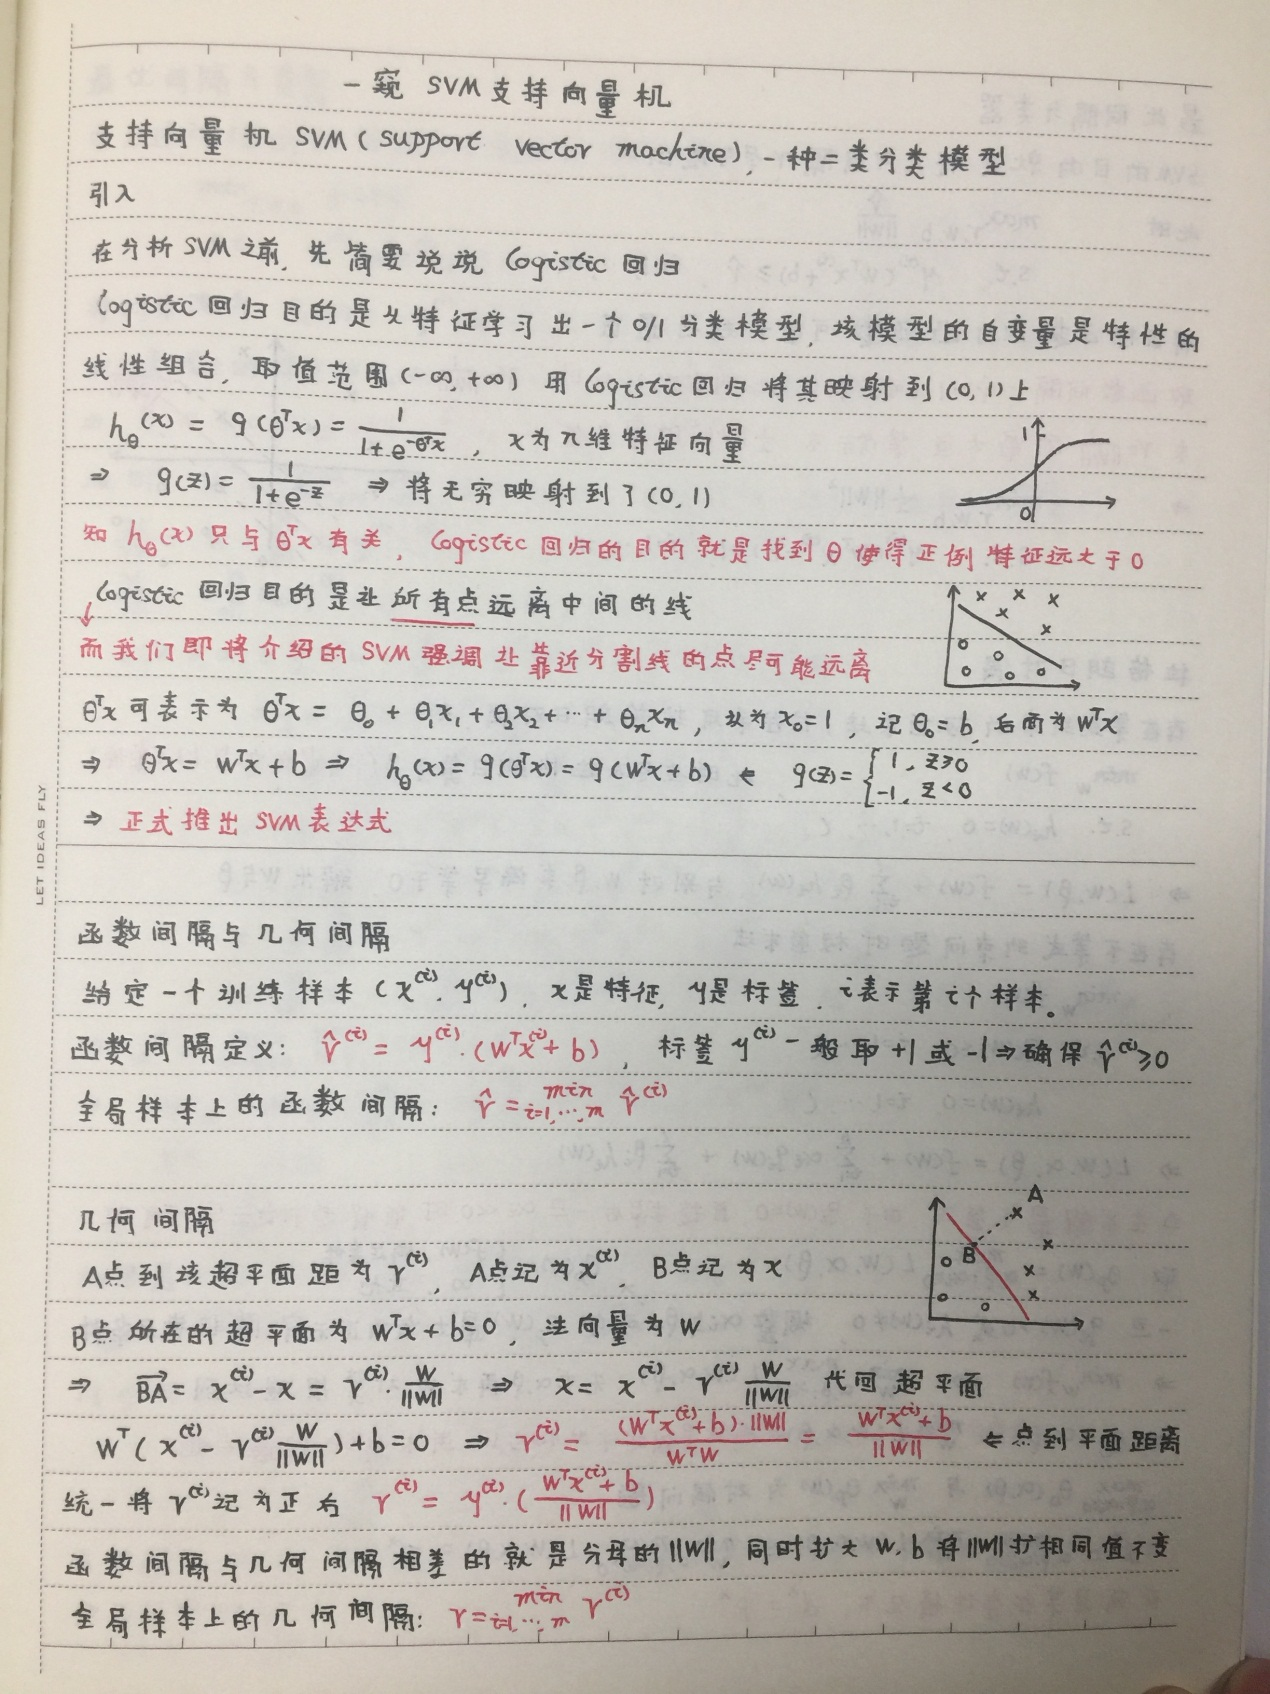 一窥 SVM支持向量机
支持向量机 SVM(support vector machine),一种二类分类模型
引入
在分析SVM之前,先简要说说 Logistic 回归
Logistic回归目的是从特征学习出一个0/1分类模型,该模型的自变量是特性的
线性组合,取值范围(-∞,+∞) 用 Logistic回归将其映射到(0,1)上
hθ(x) = g(θᵀx) = 1/(1+e^(-θᵀx)), x为n维特征向量
⇒ g(z) = 1/(1+e^(-z)) ⇒ 将无穷映射到了(0,1)
1
0
知 hθ(x)只与θᵀx有关, Logistic回归的目的就是找到θ使得正例特征远大于0
Logistic 回归目的是让所有点远离中间的线
而我们即将介绍的SVM强调让靠近分割线的点尽可能远离
θᵀx可表示为 θᵀx = θ₀ + θ₁x₁ + θ₂x₂ + ⋯ + θₙxₙ, 认为x₀=1, 记θ₀=b, 后面为wᵀx
⇒ θᵀx = wᵀx+b ⇒ hθ(x) = g(θᵀx) = g(wᵀx+b) ⇐ g(z) = { 1, z≥0
-1, z<0
⇒ 正式推出SVM表达式
LET IDEAS FLY
函数间隔与几何间隔
给定一个训练样本(x⁽ⁱ⁾, y⁽ⁱ⁾), x是特征, y是标签, i表示第i个样本。
函数间隔定义: r̂⁽ⁱ⁾ = y⁽ⁱ⁾·(wᵀx⁽ⁱ⁾+b), 标签y⁽ⁱ⁾一般取+1或-1⇒确保r̂⁽ⁱ⁾≥0
全局样本上的函数间隔: r̂ = min i=1,…,m r̂⁽ⁱ⁾
几何间隔
A
B
A点到该超平面距为r⁽ⁱ⁾, A点记为x⁽ⁱ⁾, B点记为x
B点所在的超平面为 wᵀx+b=0, 法向量为w
⇒ BA→ = x⁽ⁱ⁾-x = r⁽ⁱ⁾·w/||w|| ⇒ x = x⁽ⁱ⁾-r⁽ⁱ⁾ w/||w|| 代回超平面
wᵀ(x⁽ⁱ⁾-r⁽ⁱ⁾ w/||w||)+b=0 ⇒ r⁽ⁱ⁾ = (wᵀx⁽ⁱ⁾+b)·||w||/wᵀw = (wᵀx⁽ⁱ⁾+b)/||w|| ⇐点到平面距离
统一将r⁽ⁱ⁾记为正有 r⁽ⁱ⁾ = y⁽ⁱ⁾·((wᵀx⁽ⁱ⁾+b)/||w||)
函数间隔与几何间隔相差的就是分母的||w||,同时扩大w,b将||w||扩相同值不变
全局样本上的几何间隔: r = min i=1,…,m r⁽ⁱ⁾